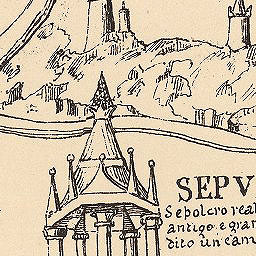 SEPV
Sepolcro real
antigo e gran
dito un'eam